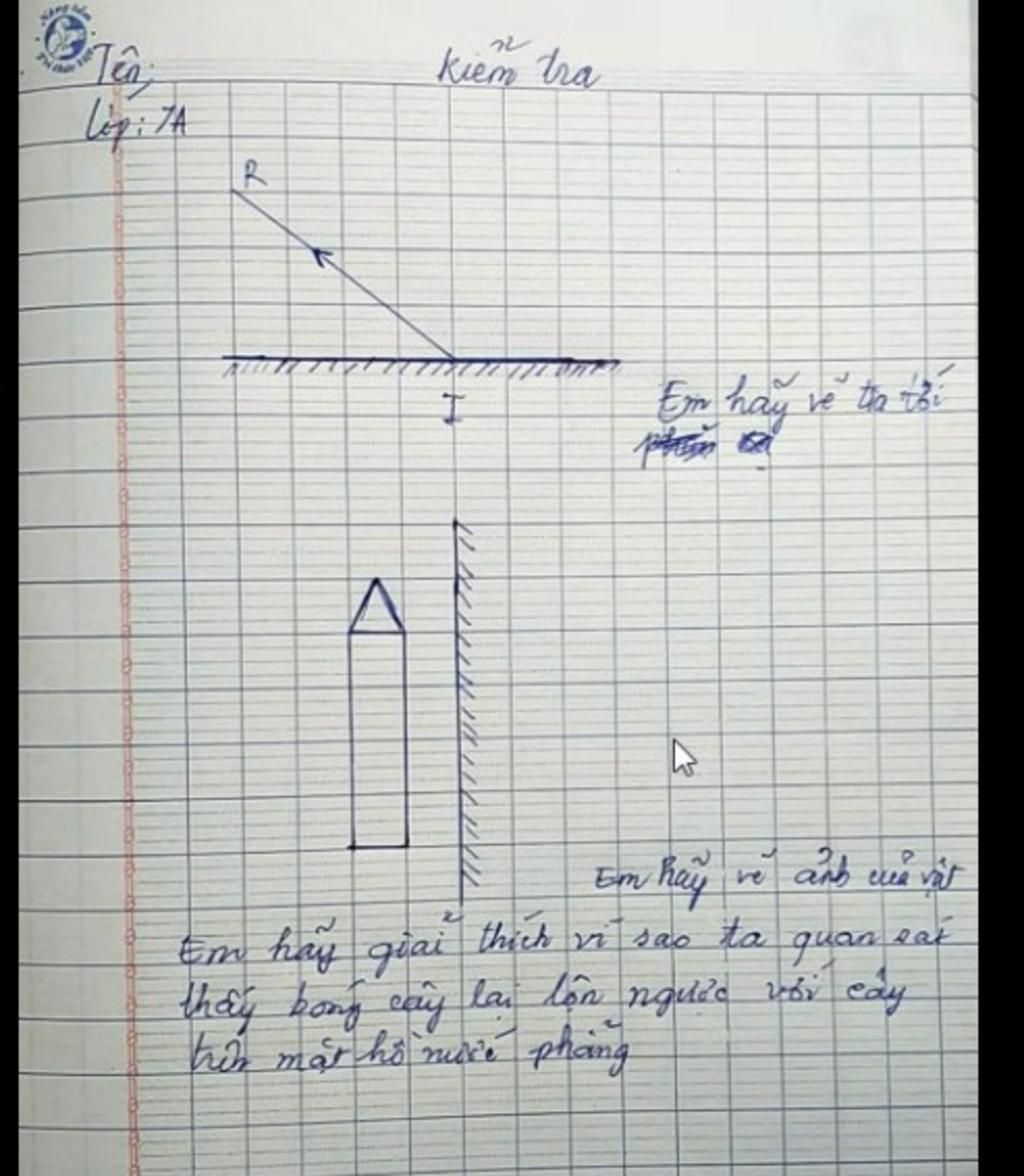 Năng tầm
Tri thức Việt
Tên:
Kiểm tra
Lớp: 7A
R
I
Em hãy vẽ tia tới
Em hãy vẽ ảnh của vật
Em hãy giải thích vì sao ta quan sát
thấy bóng cây lại lộn ngược với cây
trên mặt hồ nước phẳng